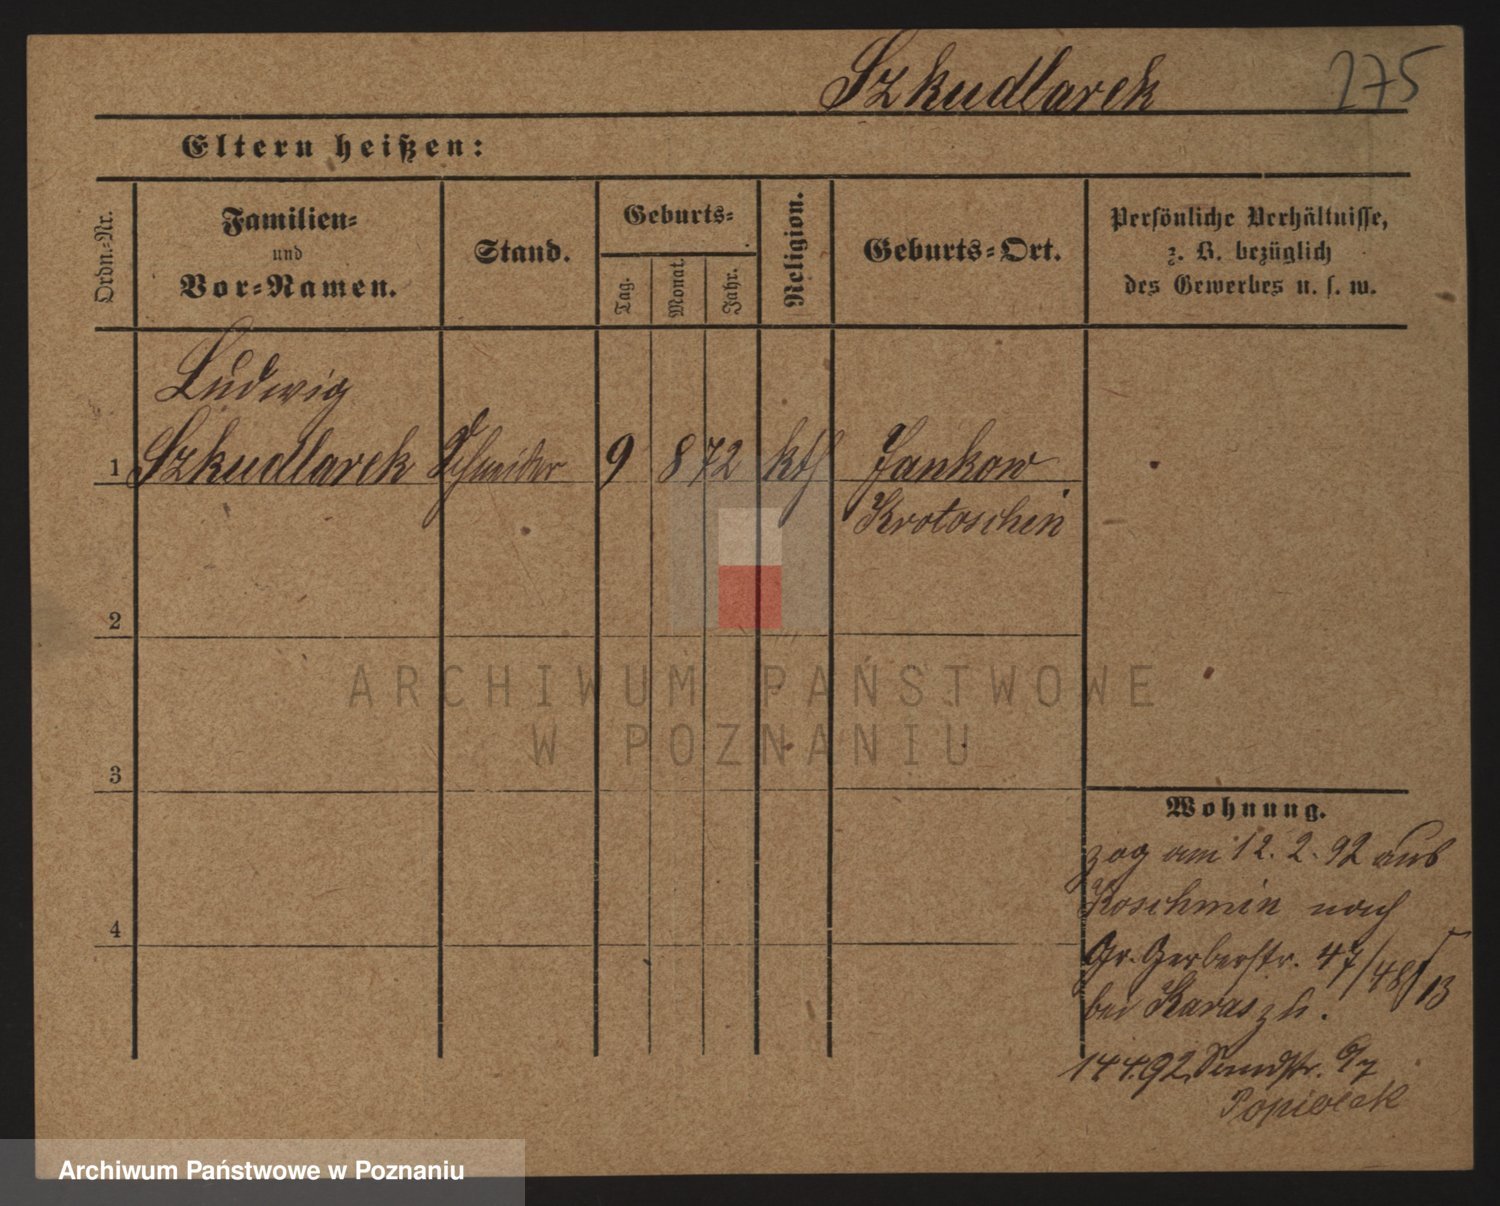 Szkudlarek 275
Eltern heißen:
Ordn.-Nr.
Familien-
und
Vor-Namen.
Stand.
Geburts-
Tag.
Monat.
Jahr.
Religion.
Geburts-Ort.
Persönliche Verhältnisse,
z. B. bezüglich
des Gewerbes u. s. w.
Ludwig
1 Szkudlarek Schneider 9 8 72 kth Jankow
Krotoschin
2
3
4
ARCHIWUM PAŃSTWOWE
W POZNANIU
Wohnung.
zog am 12. 2. 92 aus
Koschmin nach
Gr. Gerberstr. 47/48
bei
14.4.92 Sandstr.
Archiwum Państwowe w Poznaniu